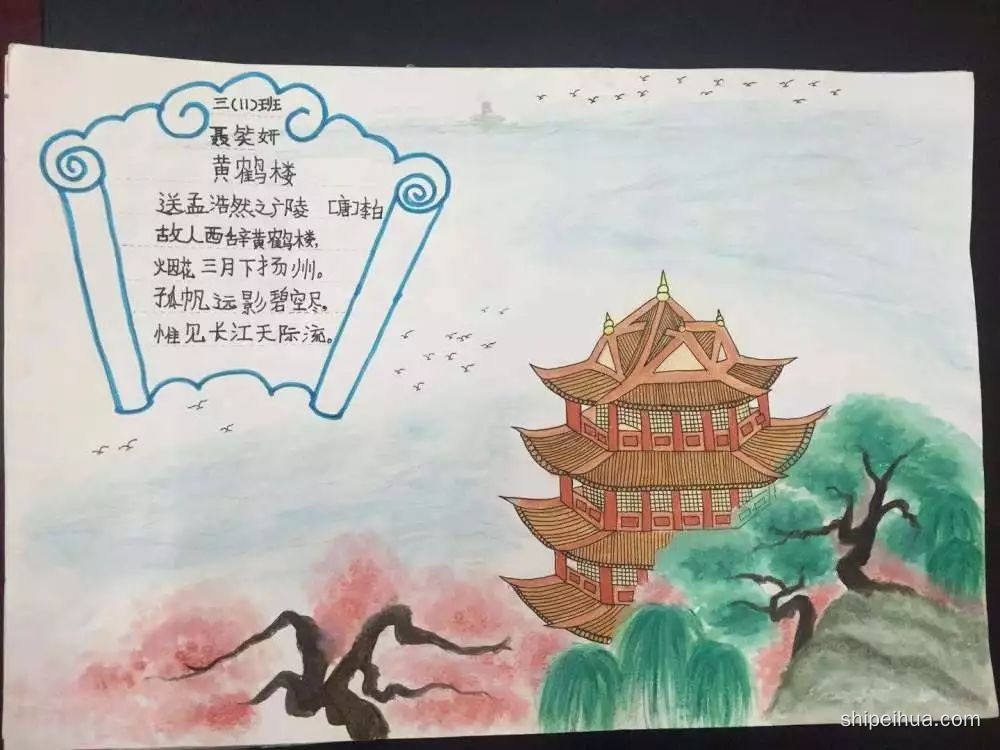 三(11)班
聂笑妍
黄鹤楼
送孟浩然之广陵 [唐]李白
故人西辞黄鹤楼,
烟花三月下扬州。
孤帆远影碧空尽,
惟见长江天际流。
shipeihua.com